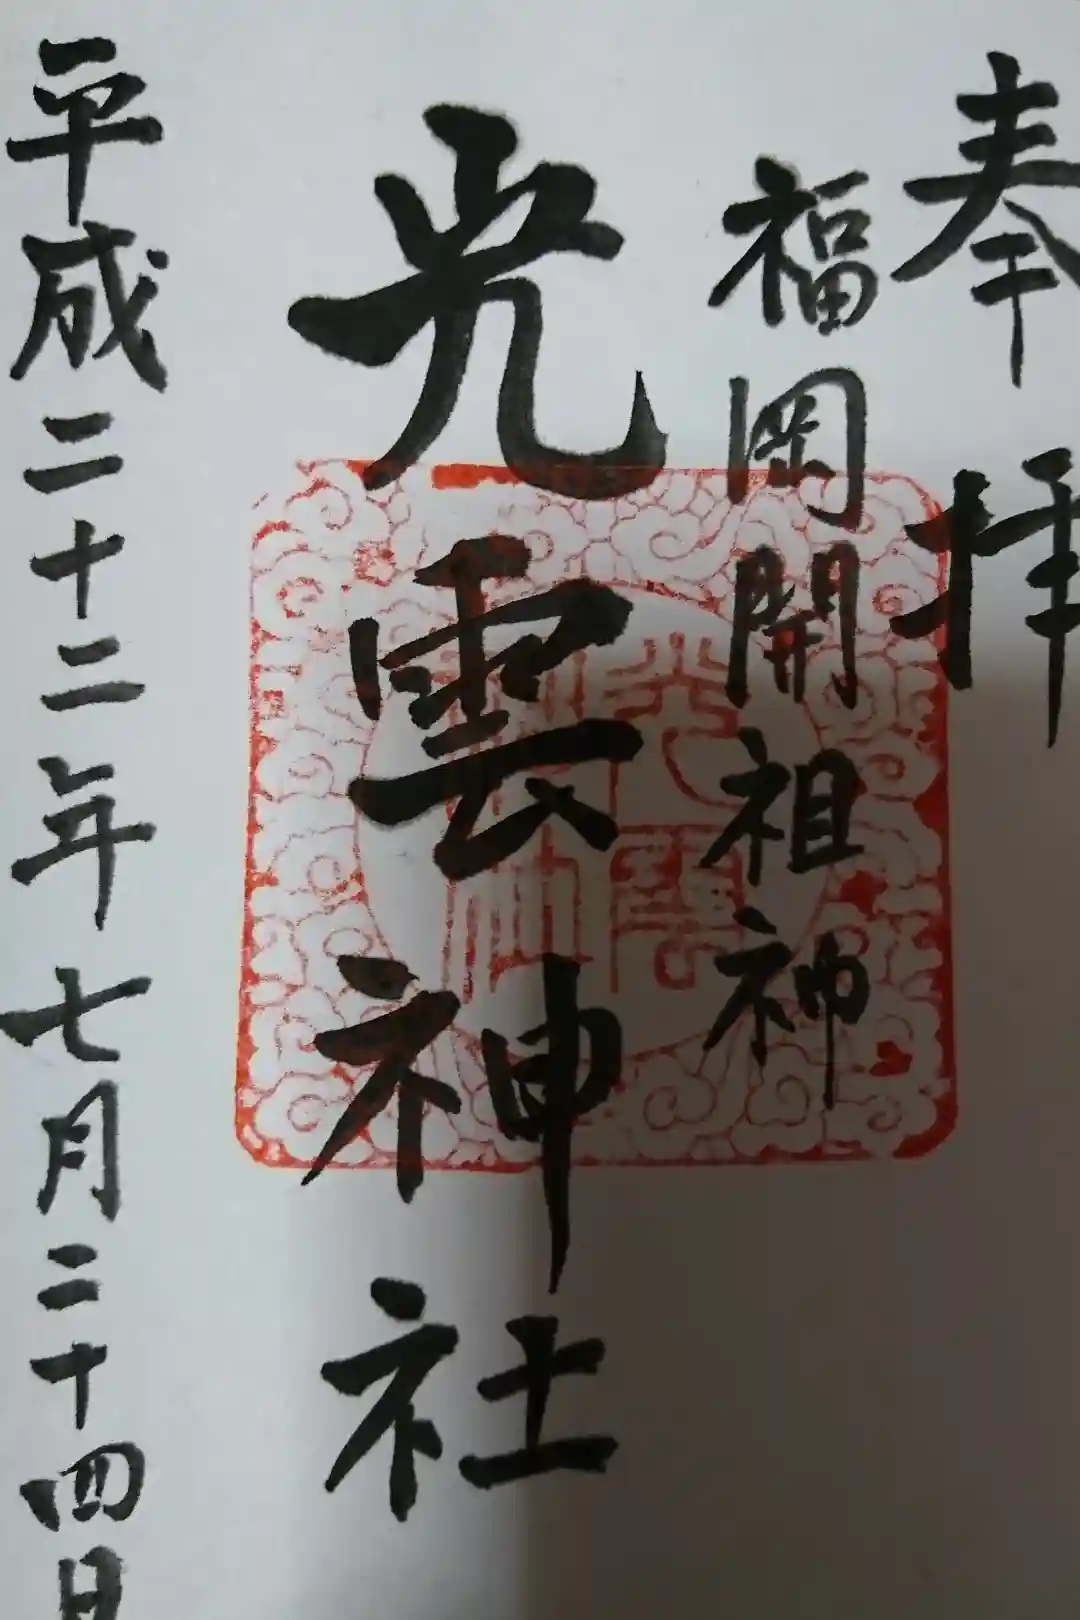 奉拝
福岡開祖神
光雲神社
平成二十二年七月二十四日